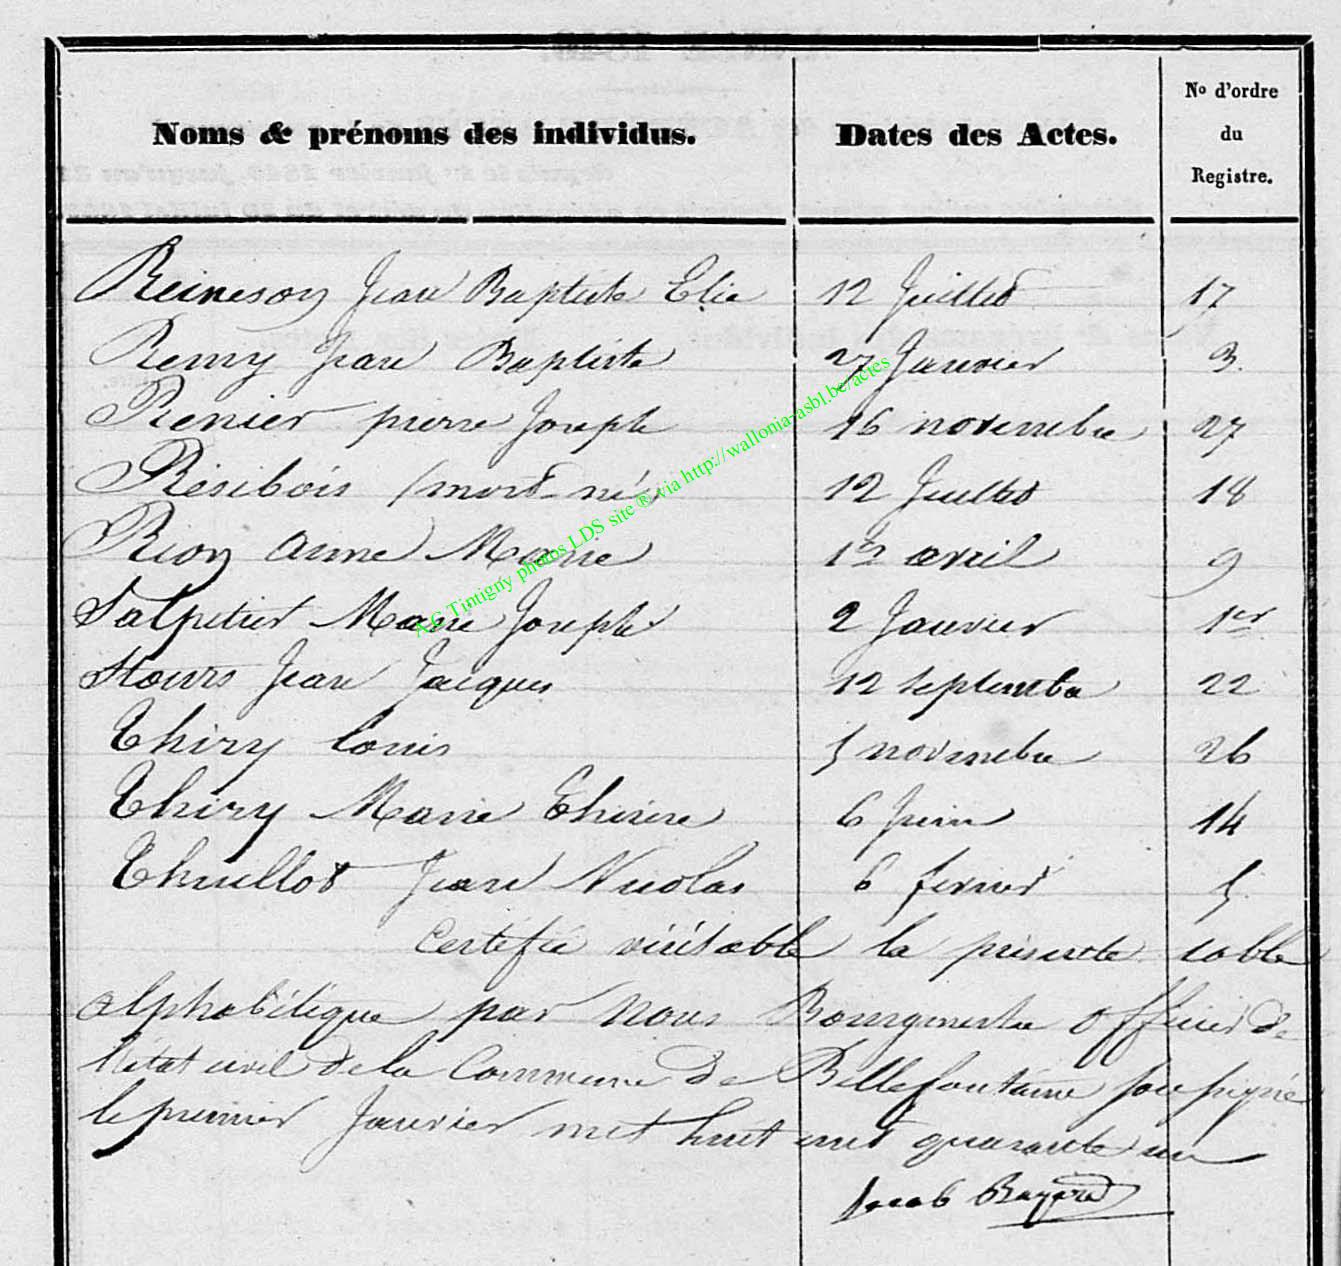 Noms & prénoms des individus. Dates des Actes. No d'ordre du Registre.
Reineson Jean Baptiste Elie 12 Juillet 17
Remy Jean Baptiste 27 Janvier 3.
Renier pierre Joseph 16 novembre 27
Résibois (mort-né) 12 Juillet 18
Rion anne Marie 1er avril 9
Salpetier Marie Joseph 2 Janvier 1er
Stours Jean Jacques 12 septembre 22
Thiry Louis 5 novembre 26
Thiry Marie Thérèse 6 Juin 14
Thuillot Jean Nicolas 6 fevrier 5.
Certifié véritable la présente table
alphabétique par nous Bourgmestre officier de
l'état civil de la Commune de Bellefontaine soussigné
le premier Janvier mil huit cent quarante un
Jacob Bayard
A.G Tintigny photos LDS site ® via http://wallonia-asbl.be/actes